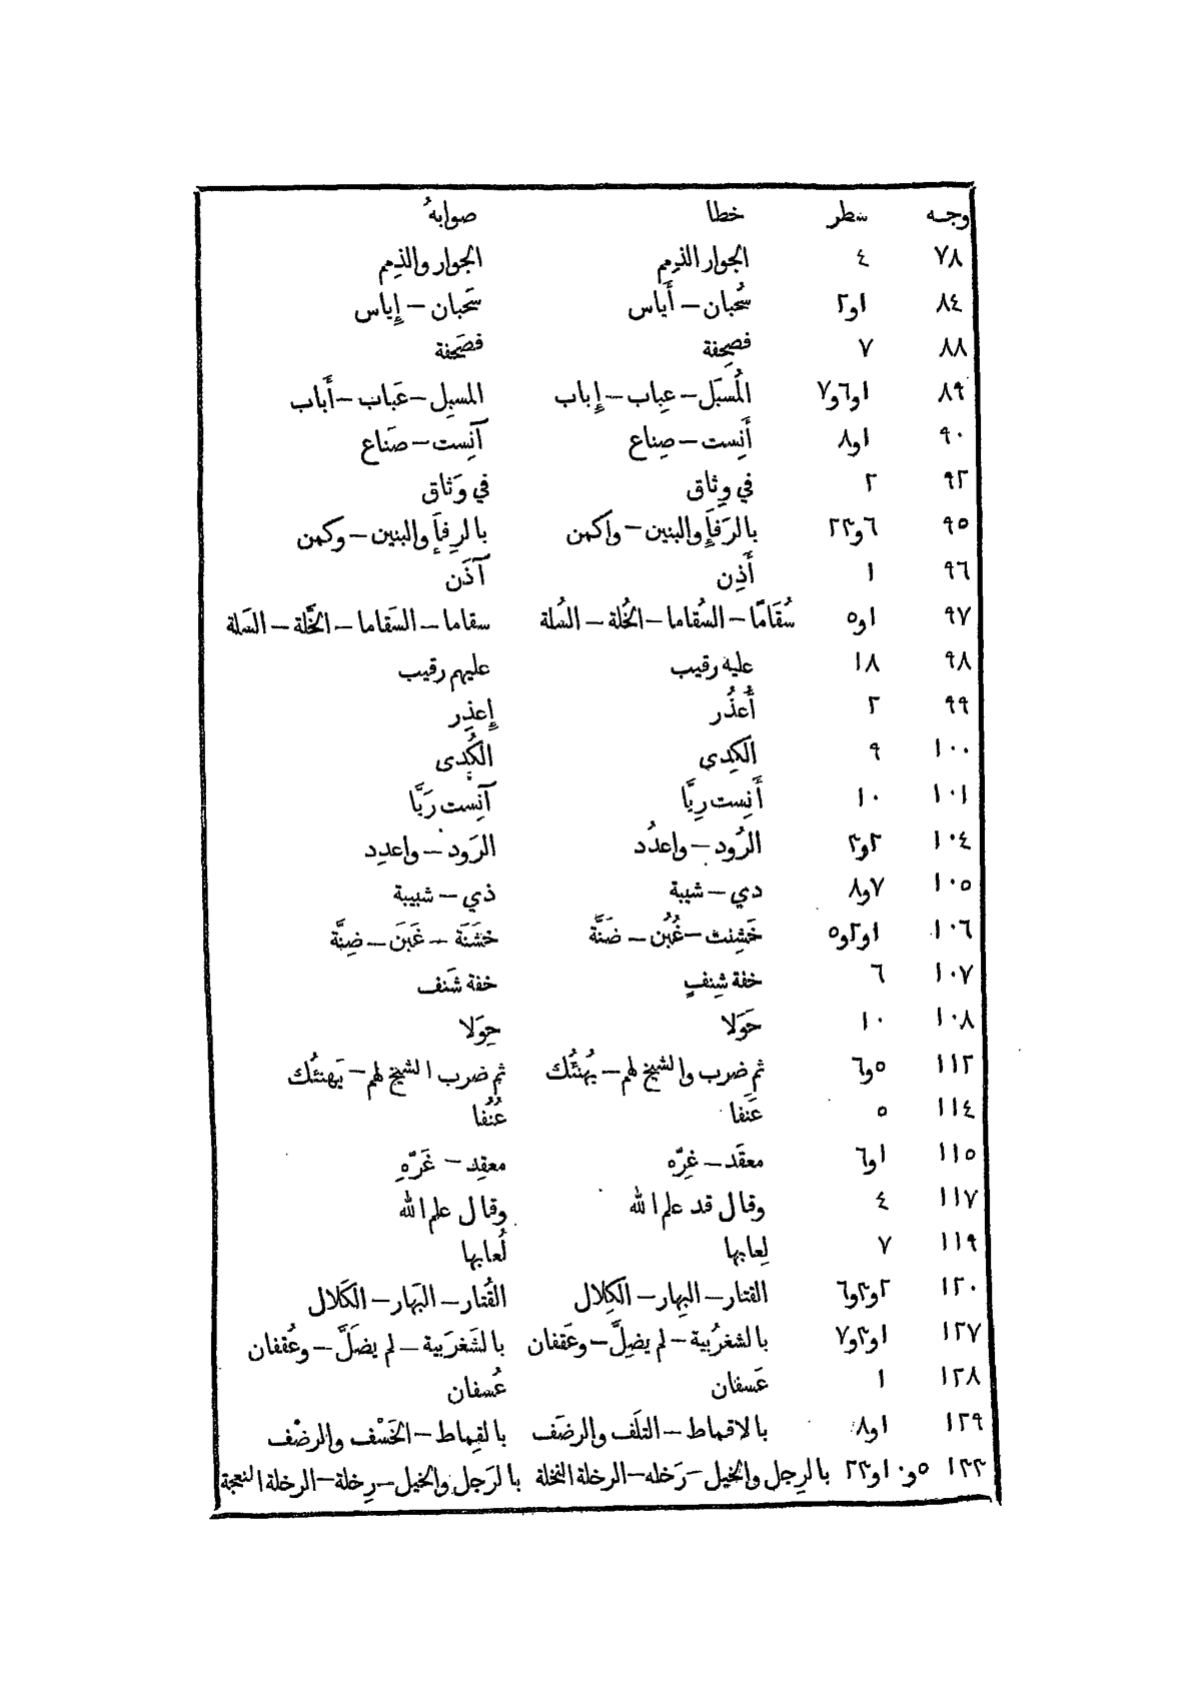 وجه سطر خطا صوابهُ
٧٨ ٤ الجوار الذِمِم الجوار والذِمِم
٨٤ ١و٢ سُحبان – أَياس سَحبان – إِياس
٨٨ ٧ فصحِفة فصَحفة
٨٩ ١و٦و٧ المُسبَل – عِباب – إِباب المسبِل – عَباب – أَباب
٩٠ ١و٨ أَنِست – صِناع آنِست – صَناع
٩٢ ٢ في وِثاق في وَثاق
٩٥ ٦و٢٣ بالرَفَإِ والبنين – واكمن بالرِفَإِ والبنين – وكمن
٩٦ ١ أَذِن آذَن
٩٧ ١و٥ سُقَامًا – السُقاما – الخُلة – السُلة سقاما – السَقاما – الخَلَّة – السَلة
٩٨ ١٨ عليه رقيب عليهم رقيب
٩٩ ٢ أُعذُر إِعذِر
١٠٠ ٩ الكِدى الكُدى
١٠١ ١٠ أَنِست رِبَّا آنِست رَبَّا
١٠٤ ٢و٣ الرُود – واعدُد الرَود – واعدِد
١٠٥ ٧و٨ دي – شيبة ذي – شبيبة
١٠٦ ١و٢و٥ خَشِنت – غُبُن – ضَنَّة خشَنَة – غَبَنَ – ضِنَّة
١٠٧ ٦ خفة شِنفٍ خفة شَنف
١٠٨ ١٠ حَوَلا حِوَلا
١١٢ ٥و٦ ثم ضرب والشيخ لهم – يُهنئُك ثم ضرب الشيخ لهم – يَهنئُك
١١٤ ٥ عَنَفا عُنُفا
١١٥ ١و٦ معقَد – غِرّه معقِد – غَرّهِ
١١٧ ٤ وقال قد علم الله وقال علم الله
١١٩ ٧ لِعابها لُعابها
١٢٠ ٢و٣و٦ القتار – البِهار – الكِلال القُتار – البَهار – الكَلال
١٢٧ ١و٣و٧ بالشغرُبية – لم يضِلَّ – وعَقفان بالشَغرَبية – لم يضَلَّ – وعُقفان
١٢٨ ١ عَسفان عُسفان
١٢٩ ١و٨ بالاقماط – التلَف والرضَف بالقِماط – الخَسْف والرضْف
١٣٣ ٥و١٠و٢٣ بالرِجل والخيل – رَخله – الرخلة النخلة بالرَجل والخيل – رِخلة – الرخلة النعجة